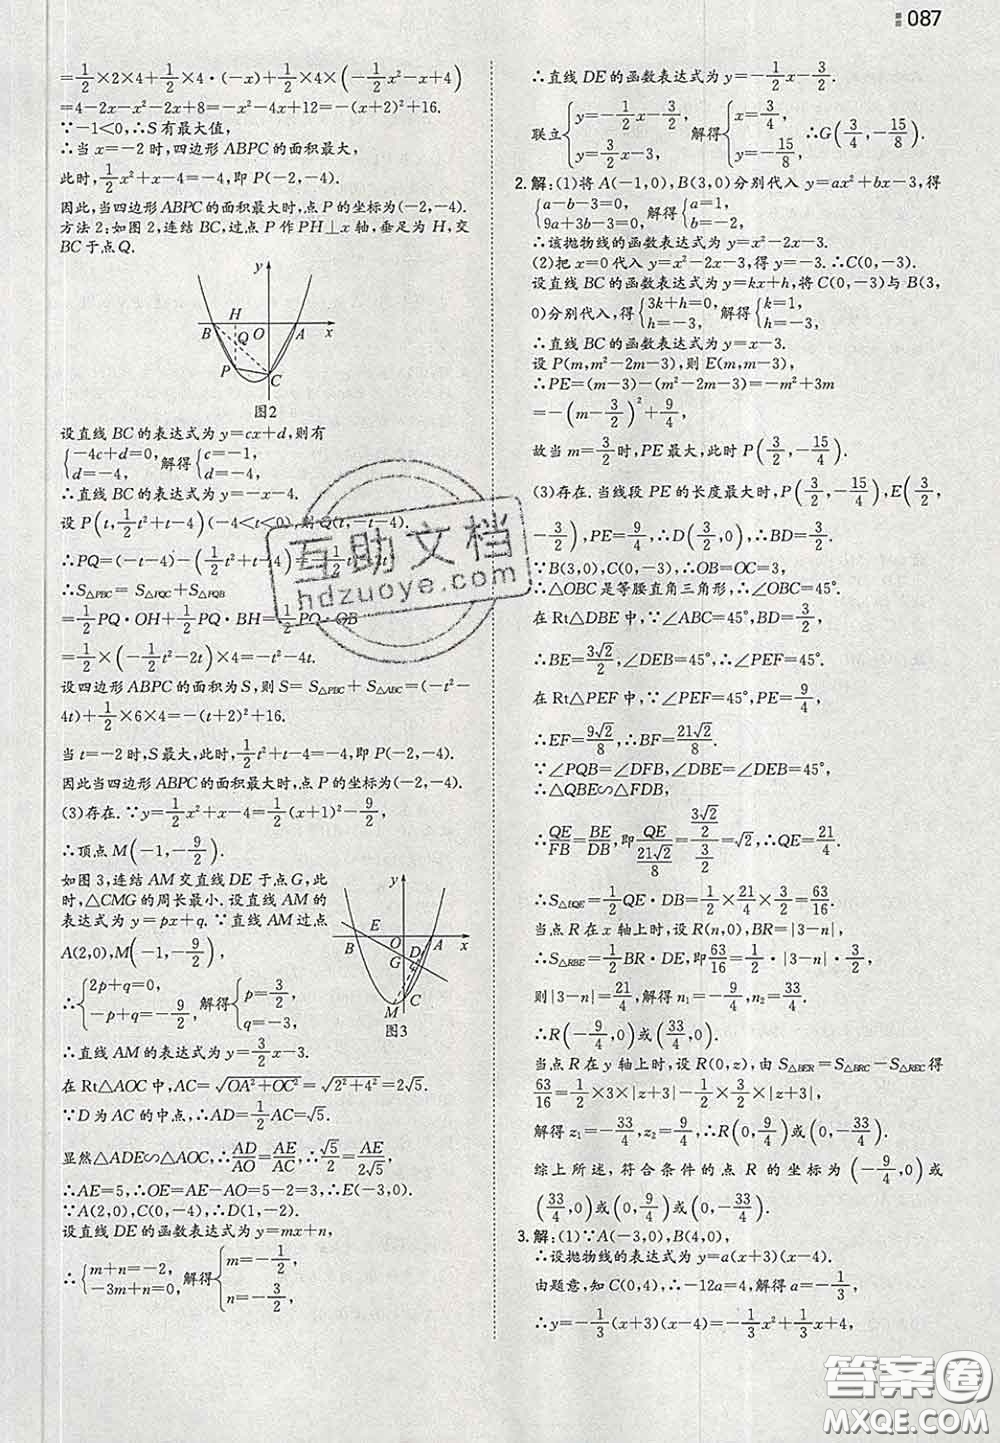 087
=1/2×2×4+1/2×4·(-x)+1/2×4×(-1/2x²-x+4)
=4-2x-x²-2x+8=-x²-4x+12=-(x+2)²+16.
∵-1<0,∴S有最大值,
∴当x=-2时,四边形ABPC的面积最大,
此时,1/2x²+x-4=-4,即P(-2,-4).
因此,当四边形ABPC的面积最大时,点P的坐标为(-2,-4).
方法2:如图2,连结BC,过点P作PH⊥x轴,垂足为H,交
BC于点Q.
y
H
B Q O A x
P C
图2
设直线BC的表达式为y=cx+d,则有
{-4c+d=0, d=-4. 解得{c=-1, d=-4.
∴直线BC的表达式为y=-x-4.
设P(t,1/2t²+t-4)(-4<t<0),则Q(t,-t-4).
∴PQ=(-t-4)-(1/2t²+t-4)=-1/2t²-2t.
∴S△PBC=S△PQC+S△PQB
=1/2PQ·OH+1/2PQ·BH=1/2PQ·OB
=1/2×(-1/2t²-2t)×4=-t²-4t.
设四边形ABPC的面积为S,则S=S△PBC+S△ABC=(-t²-
4t)+1/2×6×4=-(t+2)²+16.
当t=-2时,S最大,此时,1/2t²+t-4=-4,即P(-2,-4).
因此当四边形ABPC的面积最大时,点P的坐标为(-2,-4).
(3)存在.∵y=1/2x²+x-4=1/2(x+1)²-9/2,
∴顶点M(-1,-9/2).
如图3,连结AM交直线DE于点G,此
时,△CMG的周长最小.设直线AM的
表达式为y=px+q.∵直线AM过点
A(2,0),M(-1,-9/2),
∴{2p+q=0, -p+q=-9/2, 解得{p=3/2, q=-3,
y
E
B O D A x
G
M C
图3
∴直线AM的表达式为y=3/2x-3.
在Rt△AOC中,AC=√OA²+OC²=√2²+4²=2√5.
∵D为AC的中点,∴AD=1/2AC=√5.
显然△ADE∽△AOC,∴AD/AO=AE/AC,∴√5/2=AE/2√5.
∴AE=5,∴OE=AE-AO=5-2=3,∴E(-3,0).
∵A(2,0),C(0,-4),∴D(1,-2).
设直线DE的函数表达式为y=mx+n,
∴{m+n=-2, -3m+n=0, 解得{m=-1/2, n=-3/2,
∴直线DE的函数表达式为y=-1/2x-3/2.
联立{y=-1/2x-3/2, y=3/2x-3, 解得{x=3/4, y=-15/8, ∴G(3/4,-15/8).
2.解:(1)将A(-1,0),B(3,0)分别代入y=ax²+bx-3,得
{a-b-3=0, 9a+3b-3=0, 解得{a=1, b=-2,
∴该抛物线的函数表达式为y=x²-2x-3.
(2)把x=0代入y=x²-2x-3,得y=-3.∴C(0,-3).
设直线BC的函数表达式为y=kx+h,将C(0,-3)与B(3,
0)分别代入,得{3k+h=0, h=-3. 解得{k=1, h=-3.
∴直线BC的函数表达式为y=x-3.
设P(m,m²-2m-3),则E(m,m-3)
∴PE=(m-3)-(m²-2m-3)=-m²+3m
=-(m-3/2)²+9/4,
故当m=3/2时,PE最大,此时P(3/2,-15/4).
(3)存在.当线段PE的长度最大时,P(3/2,-15/4),E(3/2,
-3/2),PE=9/4,∴D(3/2,0),∴BD=3/2.
∵B(3,0),C(0,-3),∴OB=OC=3,
∴△OBC是等腰直角三角形,∴∠ABC=45°.
在Rt△DBE中,∵∠ABC=45°,BD=3/2,
∴BE=3√2/2,∠DEB=45°,∴∠PEF=45°.
在Rt△PEF中,∵∠PEF=45°,PE=9/4,
∴EF=9√2/8,∴BF=21√2/8.
∵∠PQB=∠DFB,∠DBE=∠DEB=45°,
∴△QBE∽△FDB,
∴QE/FB=BE/DB,即QE/(21√2/8)=(3√2/2)/(3/2)=√2,∴QE=21/4.
∴S△BQE=1/2QE·DB=1/2×21/4×3/2=63/16.
当点R在x轴上时,设R(n,0),BR=|3-n|,
∴S△RBE=1/2BR·DE,即63/16=1/2·|3-n|·3/2,
则|3-n|=21/4,解得n₁=-9/4,n₂=33/4.
∴R(-9/4,0)或(33/4,0).
当点R在y轴上时,设R(0,z),由S△BER=S△BRC-S△REC得
63/16=1/2×3×|z+3|-1/2×3/2×|z+3|,
解得z₁=-33/4,z₂=9/4,∴R(0,9/4)或(0,-33/4).
综上所述,符合条件的点R的坐标为(-9/4,0)或
(33/4,0)或(0,9/4)或(0,-33/4).
3.解:(1)∵A(-3,0),B(4,0),
∴设抛物线的表达式为y=a(x+3)(x-4).
由题意,知C(0,4),∴-12a=4,解得a=-1/3
∴y=-1/3(x+3)(x-4)=-1/3x²+1/3x+4,
互助文档
hdzuoye.com
答案圈
MXQE.COM